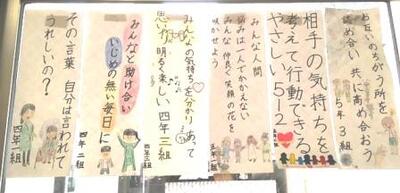 お互いのちがう所を
認め合い 共に高め合おう
5年3組
相手の気持ちを
考えて行動できる
やさしい5-2
みんな人間
悩みは一人でかかえない
みんな仲良く笑顔の花を
咲かせよう
みんなの気持ちを分かりあって
思いやり 明るく楽しい 四年三組
みんなと助け合い
いじめの無い毎日に
四年 二組
その言葉 自分は言われて
うれしいの?
四年一組